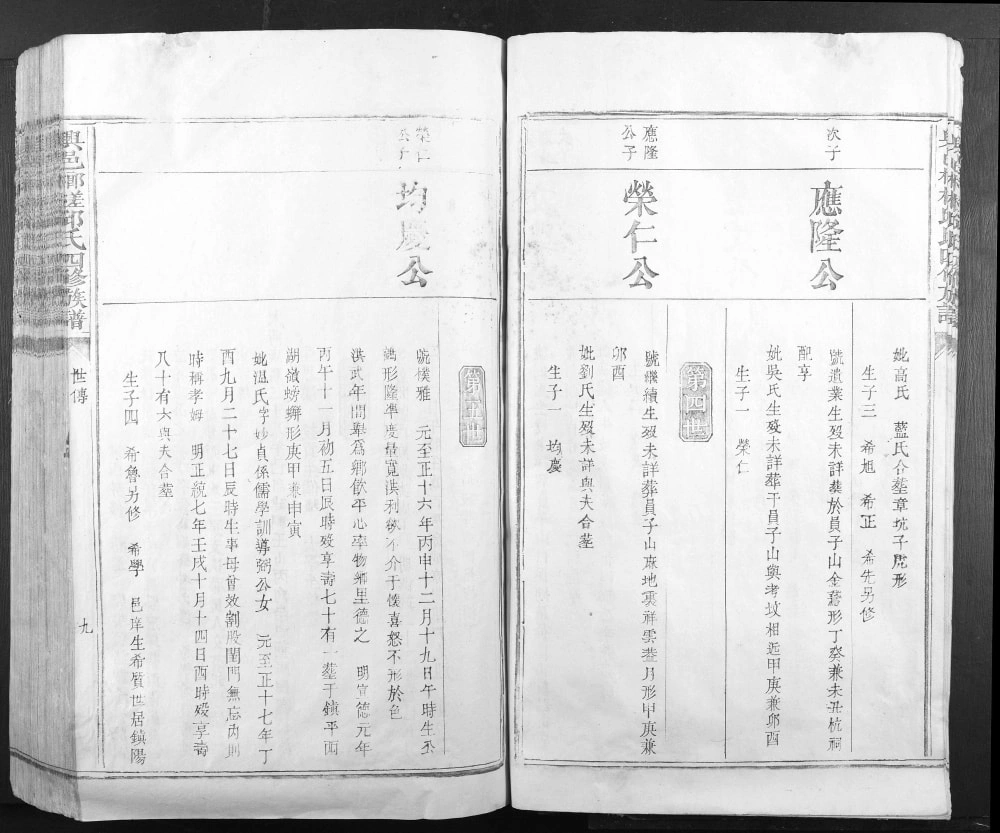 妣高氏 藍氏合塟章坑子虎形
生子三 希旭 希正 希先另修
次子
應隆公
號遺業生歿未詳葬於員子山金鵞形丁癸兼未丑杭祠
配享
妣吳氏生歿未詳葬于員子山與考坟相近甲庚兼卯酉
生子一 榮仁
第四世
應隆
公子
榮仁公
號繼續生歿未詳葬員子山麻地裏祥雲塟月形甲庚兼
卯酉
妣劉氏生歿未詳與夫合塟
生子一 均慶
第五世
榮仁
公子
均慶公
號樸雅 元至正十六年丙申十二月十九日午時生丕
形隆準度量寬洪利欲不介于懷喜怒不形於色
洪武年間舉為鄉飲平心率物鄉里德之 明宣德元年
丙午十一月初五日辰時殁享壽七十有一塟于鎮平西
湖嶺螃蠏形庚甲兼申寅
妣溫氏字妙貞係儒學訓導弼公女 元至正十七年丁
酉九月二十七日辰時生事母曾效割股閨門無忘內則
時稱孝姆 明正統七年壬戌十月十四日酉時殁享壽
八十有六與夫合塟
生子四 希魯另修 希學 邑庠生希質世居鎮陽
邱氏四修族譜
世傳
九